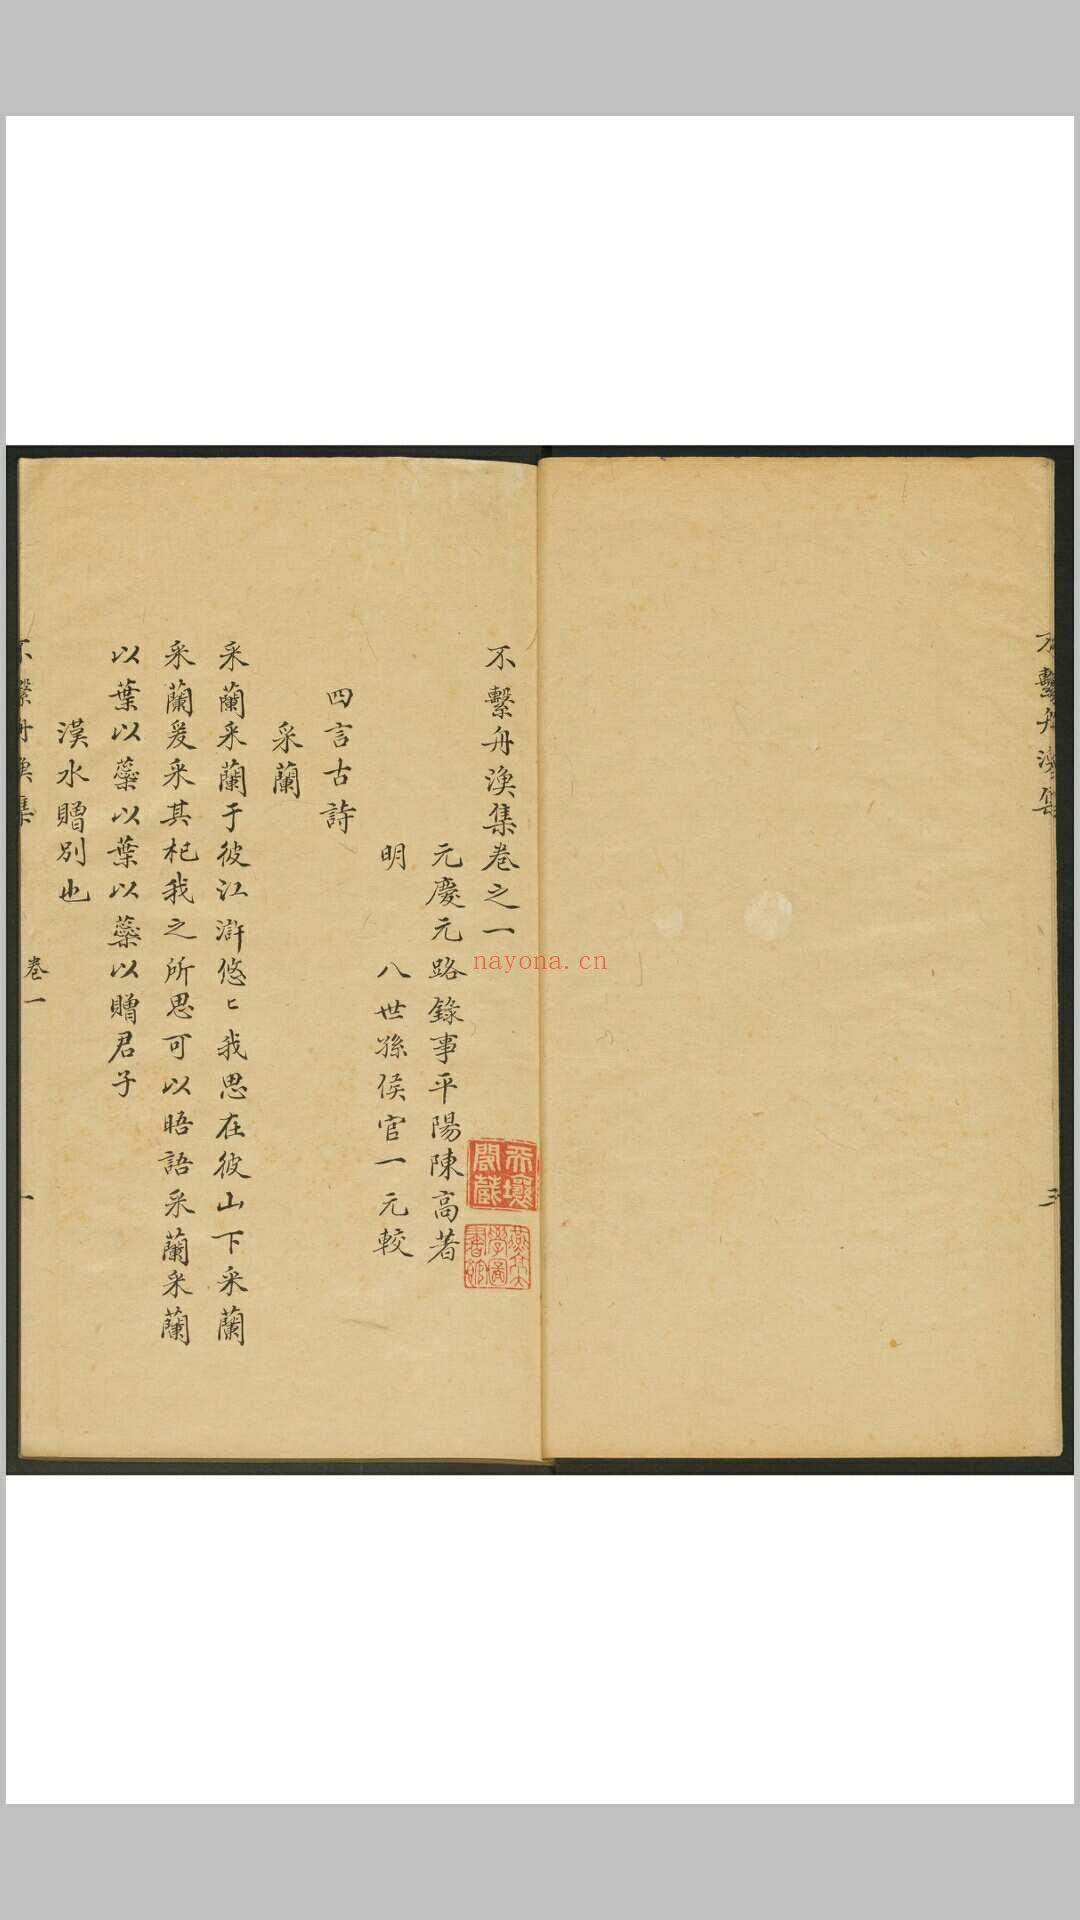 不繫舟漁集
三
不繫舟漁集卷之一
元慶元路錄事平陽陳高著
明 八世孫侯官一元較
四言古詩
采蘭
采蘭采蘭于彼江滸悠〻我思在彼山下采蘭
采蘭爰采其杞我之所思可以晤語采蘭采蘭
以葉以蘂以葉以蘂以贈君子
漢水贈別也
不繫舟漁集
卷一
一
nayona.cn